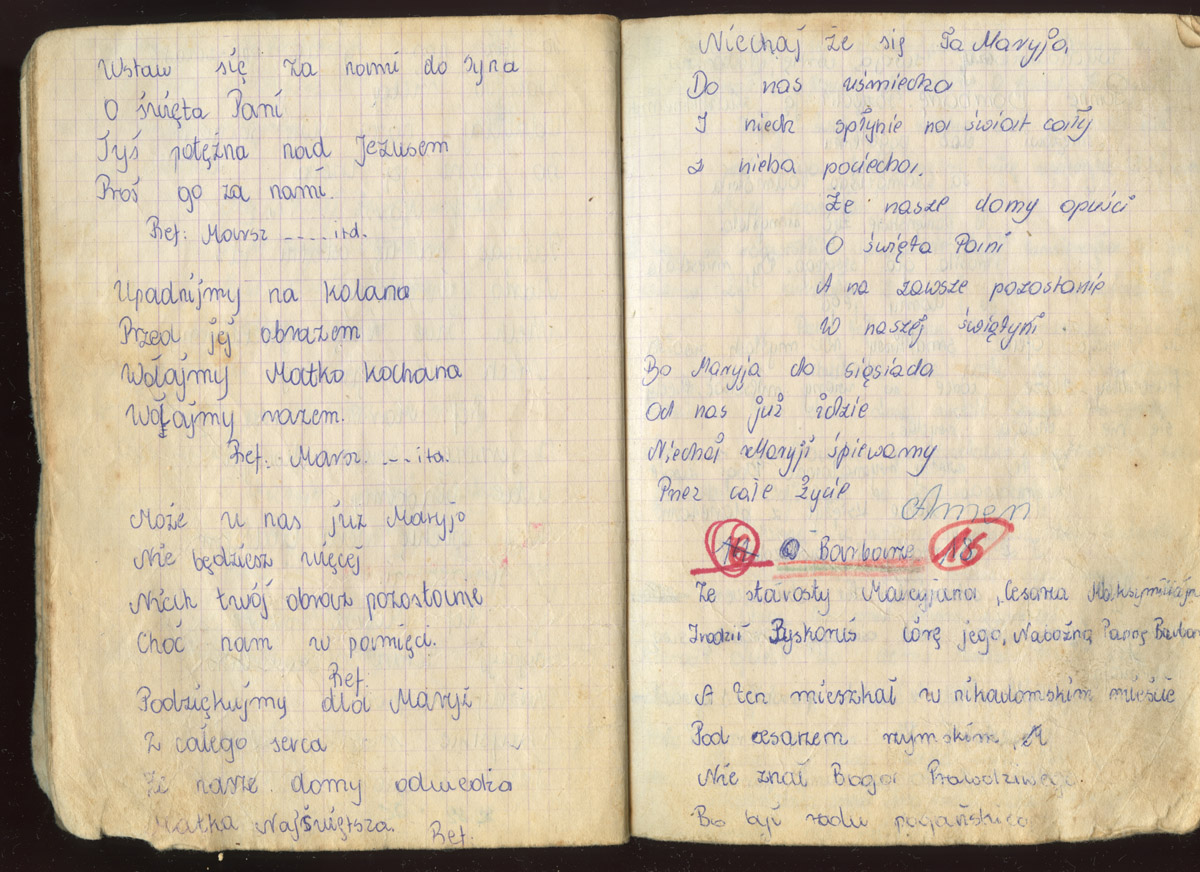 Wstaw się za nami do syna
O święta Pani
Tyś potężna nad Jezusem
Proś go za nami.
Ref: Marsz ---- itd.
Upadnijmy na kolana
Przed jej obrazem
Wołajmy Matko kochana
Wołajmy razem.
Ref: Marsz. --- itd.
Może u nas już Maryjo
Nie będziesz więcej
Niech twój obraz pozostanie
Choć nam w pamięci.
Ref.
Podziękujmy dla Maryi
Z całego serca
Że nasze domy odwedza
Matka Najświętsza. Ref.
Niechaj że się Ta Maryja,
Do nas uśmiecha
I niech spłynie na świat cały
z nieba pociecha.
Że nasze domy opuści
O święta Pani
A na zawsze pozostanie
W naszej świątyni
Bo Maryja do sięsiada
Od nas już idzie
Niechaj Maryji śpiewamy
Przez całe życie
Amen
16 O Barbarze 16
Ze starosty Marcyjana, Cesarza Maksymilijan
Zrodził Dyskoruś córę jego, Nabożną Pannę Barbar
A ten mieszkał w nikadomskim mieście
Pod cesarzem rzymskim
Nie znał Boga Prawdziwego.
Bo był rodu pogańskiego